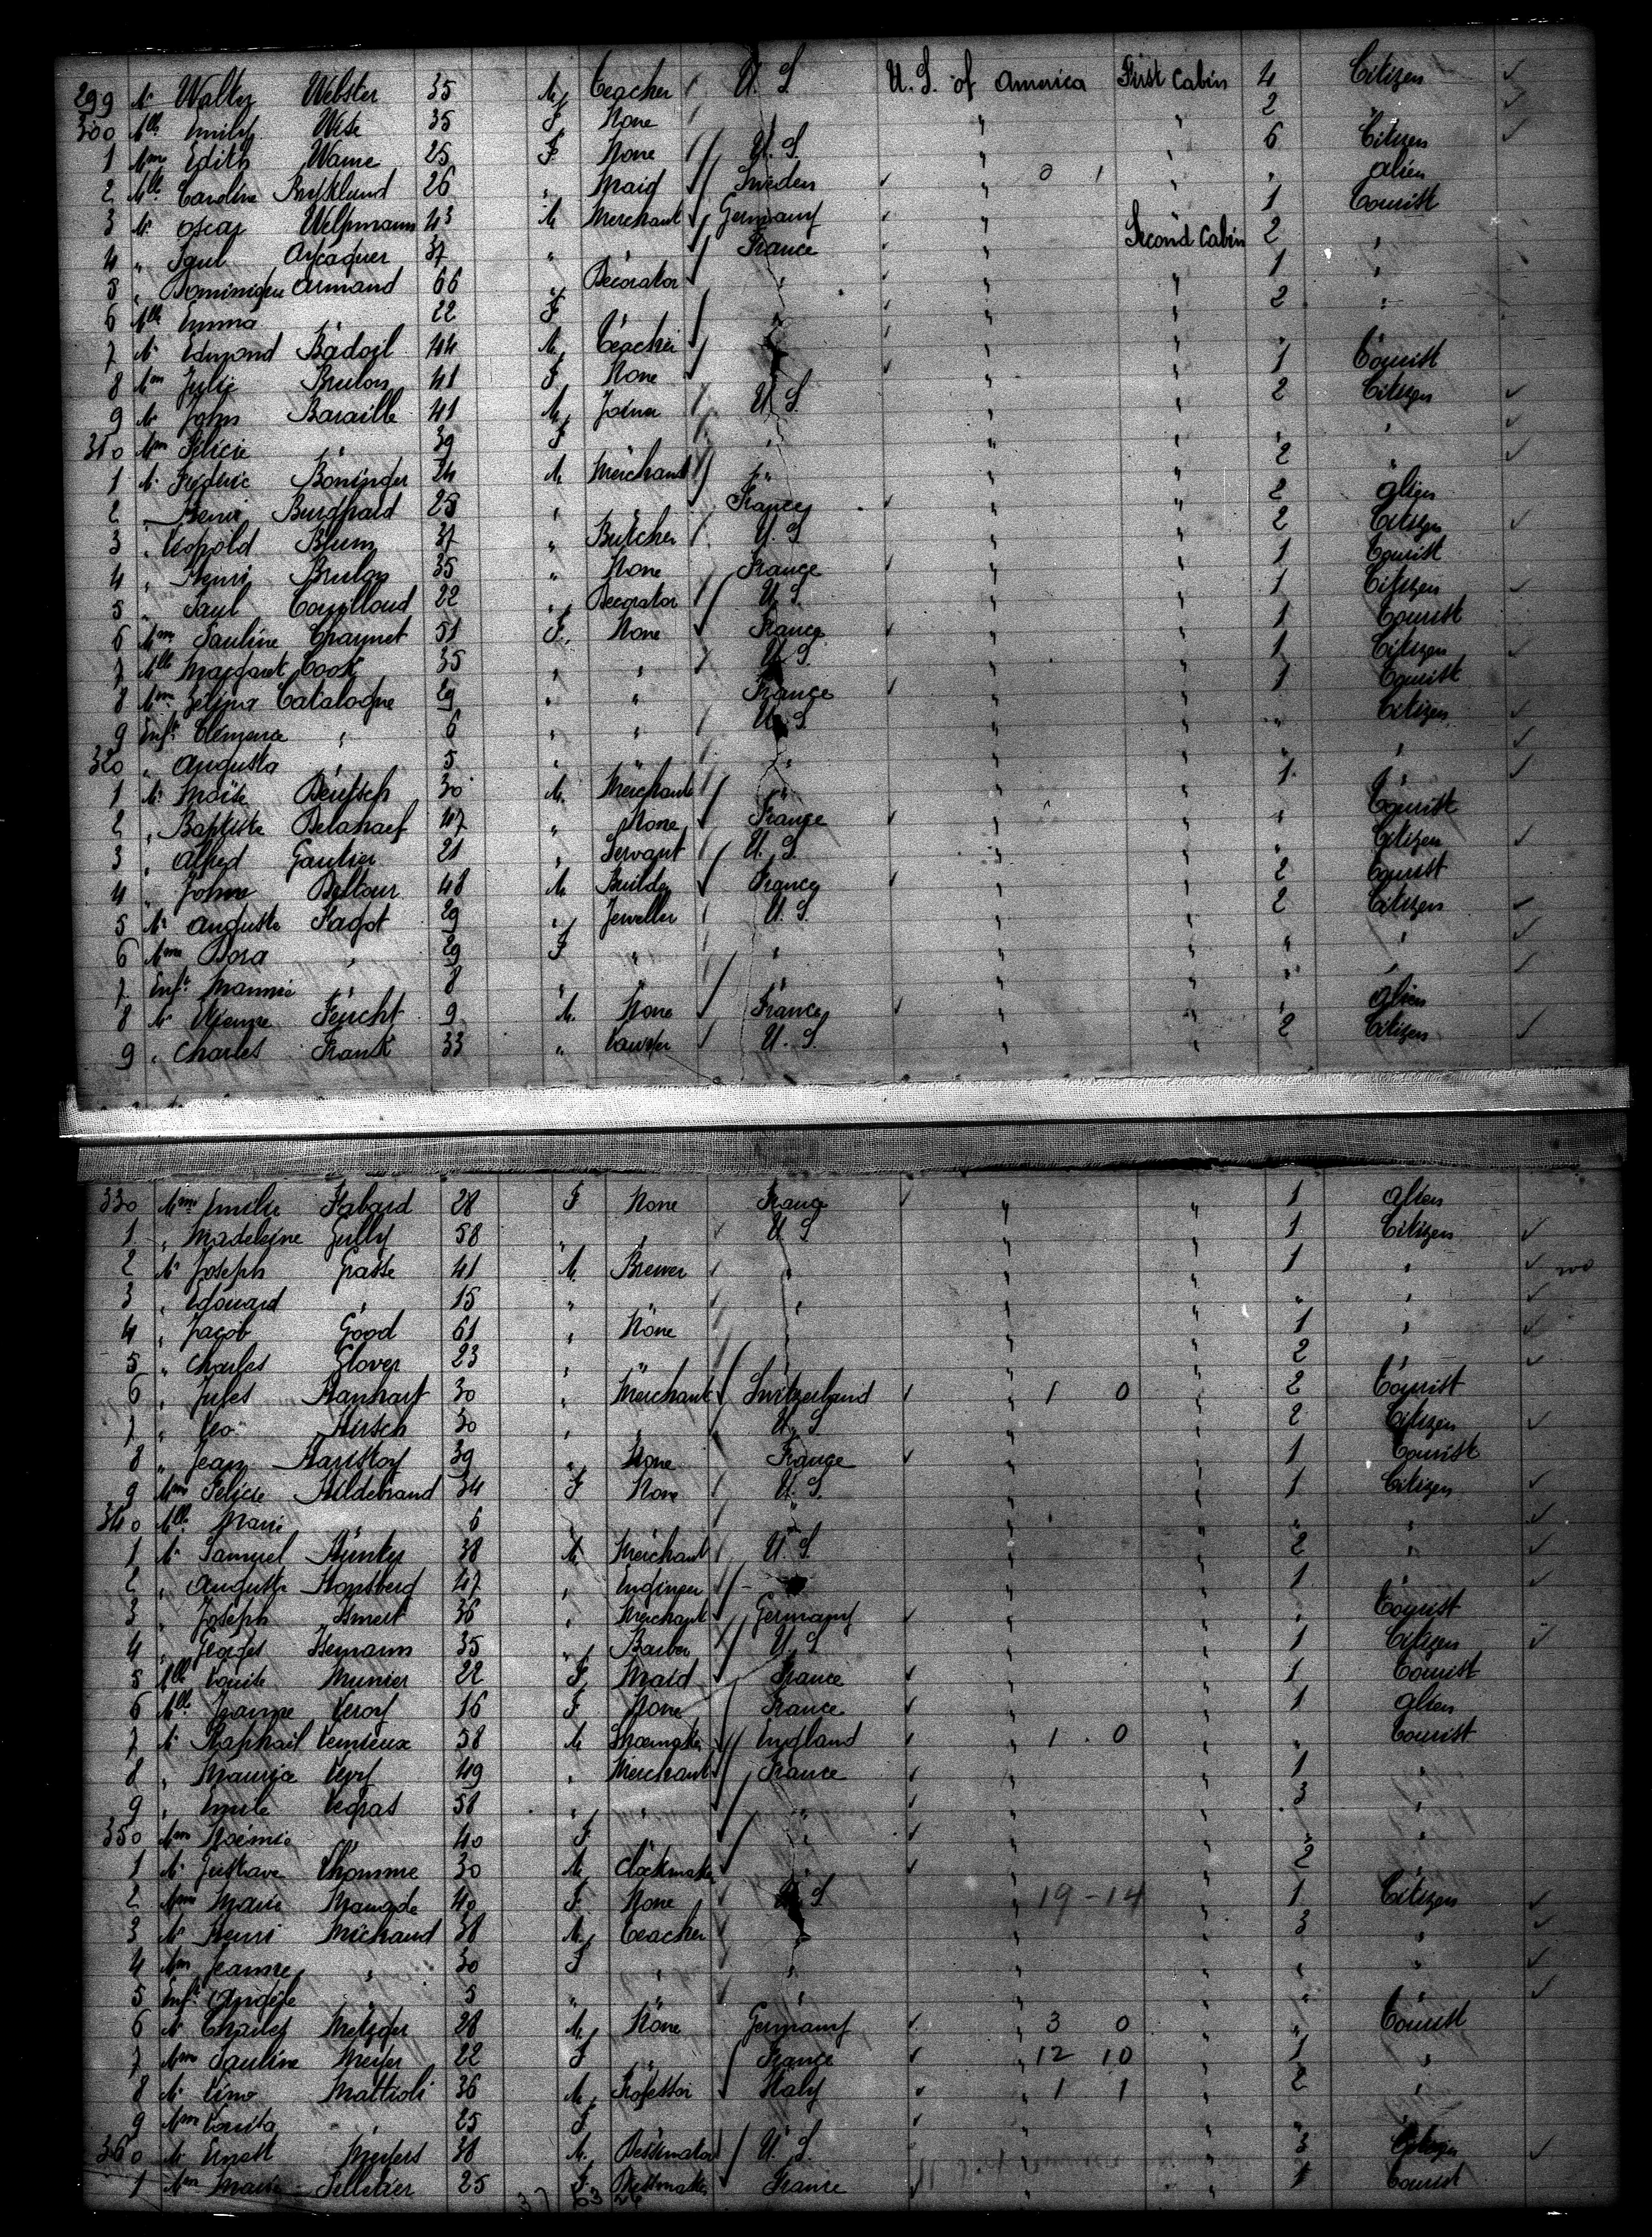 299 Mr Walter Webster 35 M Teacher U. S. U. S. of America First Cabin 4 Citizen
300 Mlle Emily Wise 35 F None " " 2 "
1 Mme Edith Warne 25 F. None U. S. " " 6 Citizen
2 Mlle Caroline 26 " Maid Sweden " 0 1 " " alien
3 Mr Oscar Welpmann 43 M Merchant Germany " 1 Tourist
4 " Paul 37 " France " Second Cabin 2 "
5 " Dominique Armand 66 " Decorator " " " 1 "
6 Mlle Emma " 22 F " " " 2 "
7 Mr Edmond Badoil 44 M Teacher " "
8 Mme Julie Brulon 41 F None " " 1 Tourist
9 Mr John Baraille 41 M U. S. " " 2 Citizen
310 Mme Félicie " 39 F " " " " "
1 Mr Frederic Boninger 24 M Merchant " " " 2 "
2 " Henri Burghard 25 " " France " " 2 alien
3 " Leopold Blum 37 " Butcher U. S " " 2 Citizen
4 " Henri Brulon 35 " None France " " 1 Tourist
5 " Paul 22 " Decorator U. S. " " 1 Citizen
6 Mme Pauline 51 F. None France " " 1 Tourist
7 Mlle Margaret Cook 35 " " U. S. " " 1 Citizen
8 Mme Zelina Catalogne 29 " " France " " 1 Tourist
9 Inft Clemence " 6 " " U. S " " " Citizen
320 " Augusta " 5 " " " " " "
1 Mr Moïse Deutsch 30 M. Merchant " " " 1 "
2 " Baptiste 47 " None France " " " Tourist
3 " Alfred Gautier 21 " Servant U. S. " " " Citizen
4 " John 48 M Builder France " " 2 Tourist
5 Mr Auguste Fagot 29 " Jeweller U. S. " " 2 Citizen
6 Mme Dora " 29 F " " " " " "
7 Inft Mannie " 8 " " " " " "
8 Mr Feucht 9 M. None France " " " alien
9 " Charles Frank 33 " U. S. " " 2 Citizen
330 Mme Emilie Habard 28 F None France " " 1 alien
1 " Madeleine Gully 58 " " U. S " " 1 Citizen
2 Mr Joseph Grasse 41 M. Brewer " " " 1 "
3 " Edouard " 15 " " " " " " "
4 " Jacob Good 61 " None " " 1 "
5 " Charles Glover 23 " " " " 2 "
6 " Jules Hanhart 30 " Merchant Switzerland " 1 0 " 2 Tourist
7 " Leo Hirsch 30 " " U. S " " 2 Citizen
8 " Jean 39 " None France " " 1 Tourist
9 Mme Felicie Hildebrand 34 F None U. S. " " 1 Citizen
340 Mlle Marie " 6 " " " " "
1 Mr Samuel Hunter 38 M Merchant U. S. " " 2 "
2 " Auguste 47 " Engineer " " 1 "
3 " Joseph 36 " Merchant Germany " " " Tourist
4 " Georges Isemann 35 " Barber U. S " " 1 Citizen
5 Mlle Louise Munier 22 F Maid France " " 1 Tourist
6 Mlle Jeanne Leroy 16 F None France " " 1 alien
7 Mr Raphael 58 M Shoemaker England " 1 0 " " Tourist
8 " Maurice Levy 49 " Merchant France " " 1 "
9 " Emile Legras 51 " " " " " 3 "
350 Mme Noémie " 40 F " " " "
1 Mr Gustave Lhomme 30 M Clockmaker " " 2 "
2 Mme Marie 40 F None U. S 19 - 14 " 1 Citizen
3 Mr Henri Michaud 38 M. Teacher " " " 3 "
4 Mme Jeanne " 30 F " " " " " "
5 Inft Angèle " 5 " " " " " " "
6 Mr Charles Metzger 28 M. None Germany " 3 0 " " Tourist
7 Mme Pauline Meyer 22 F " France " 12 10 " 1 "
8 Mr Lino Mattioli 36 M. Professor Italy " 1 1 " 2 "
9 Mme Louisa " 25 F " " "
360 Mr Ernest Meyers 38 M. U. S. " " 3 Citizen
1 Mme Marie Pelletier 25 F Dressmaker France " " 1 Tourist